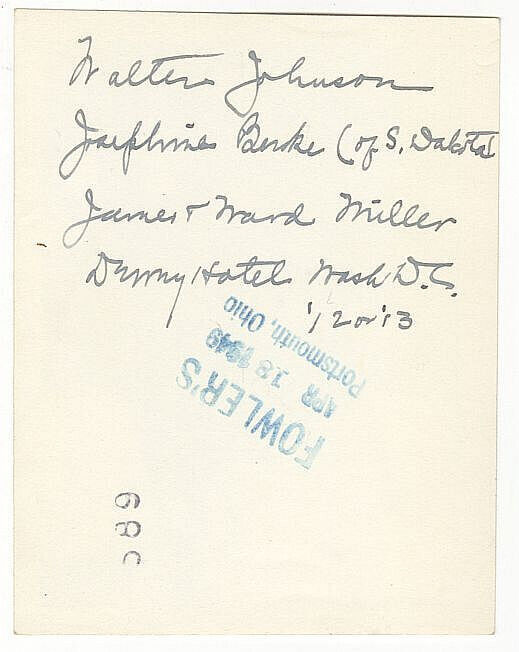 Walter Johnson
Josephine Burke (of S. Dakota)
James & Ward Miller
Hotel Wash D.C.
'12 or '13
FOWLER'S
APR 18 1949
Portsmouth, Ohio
589